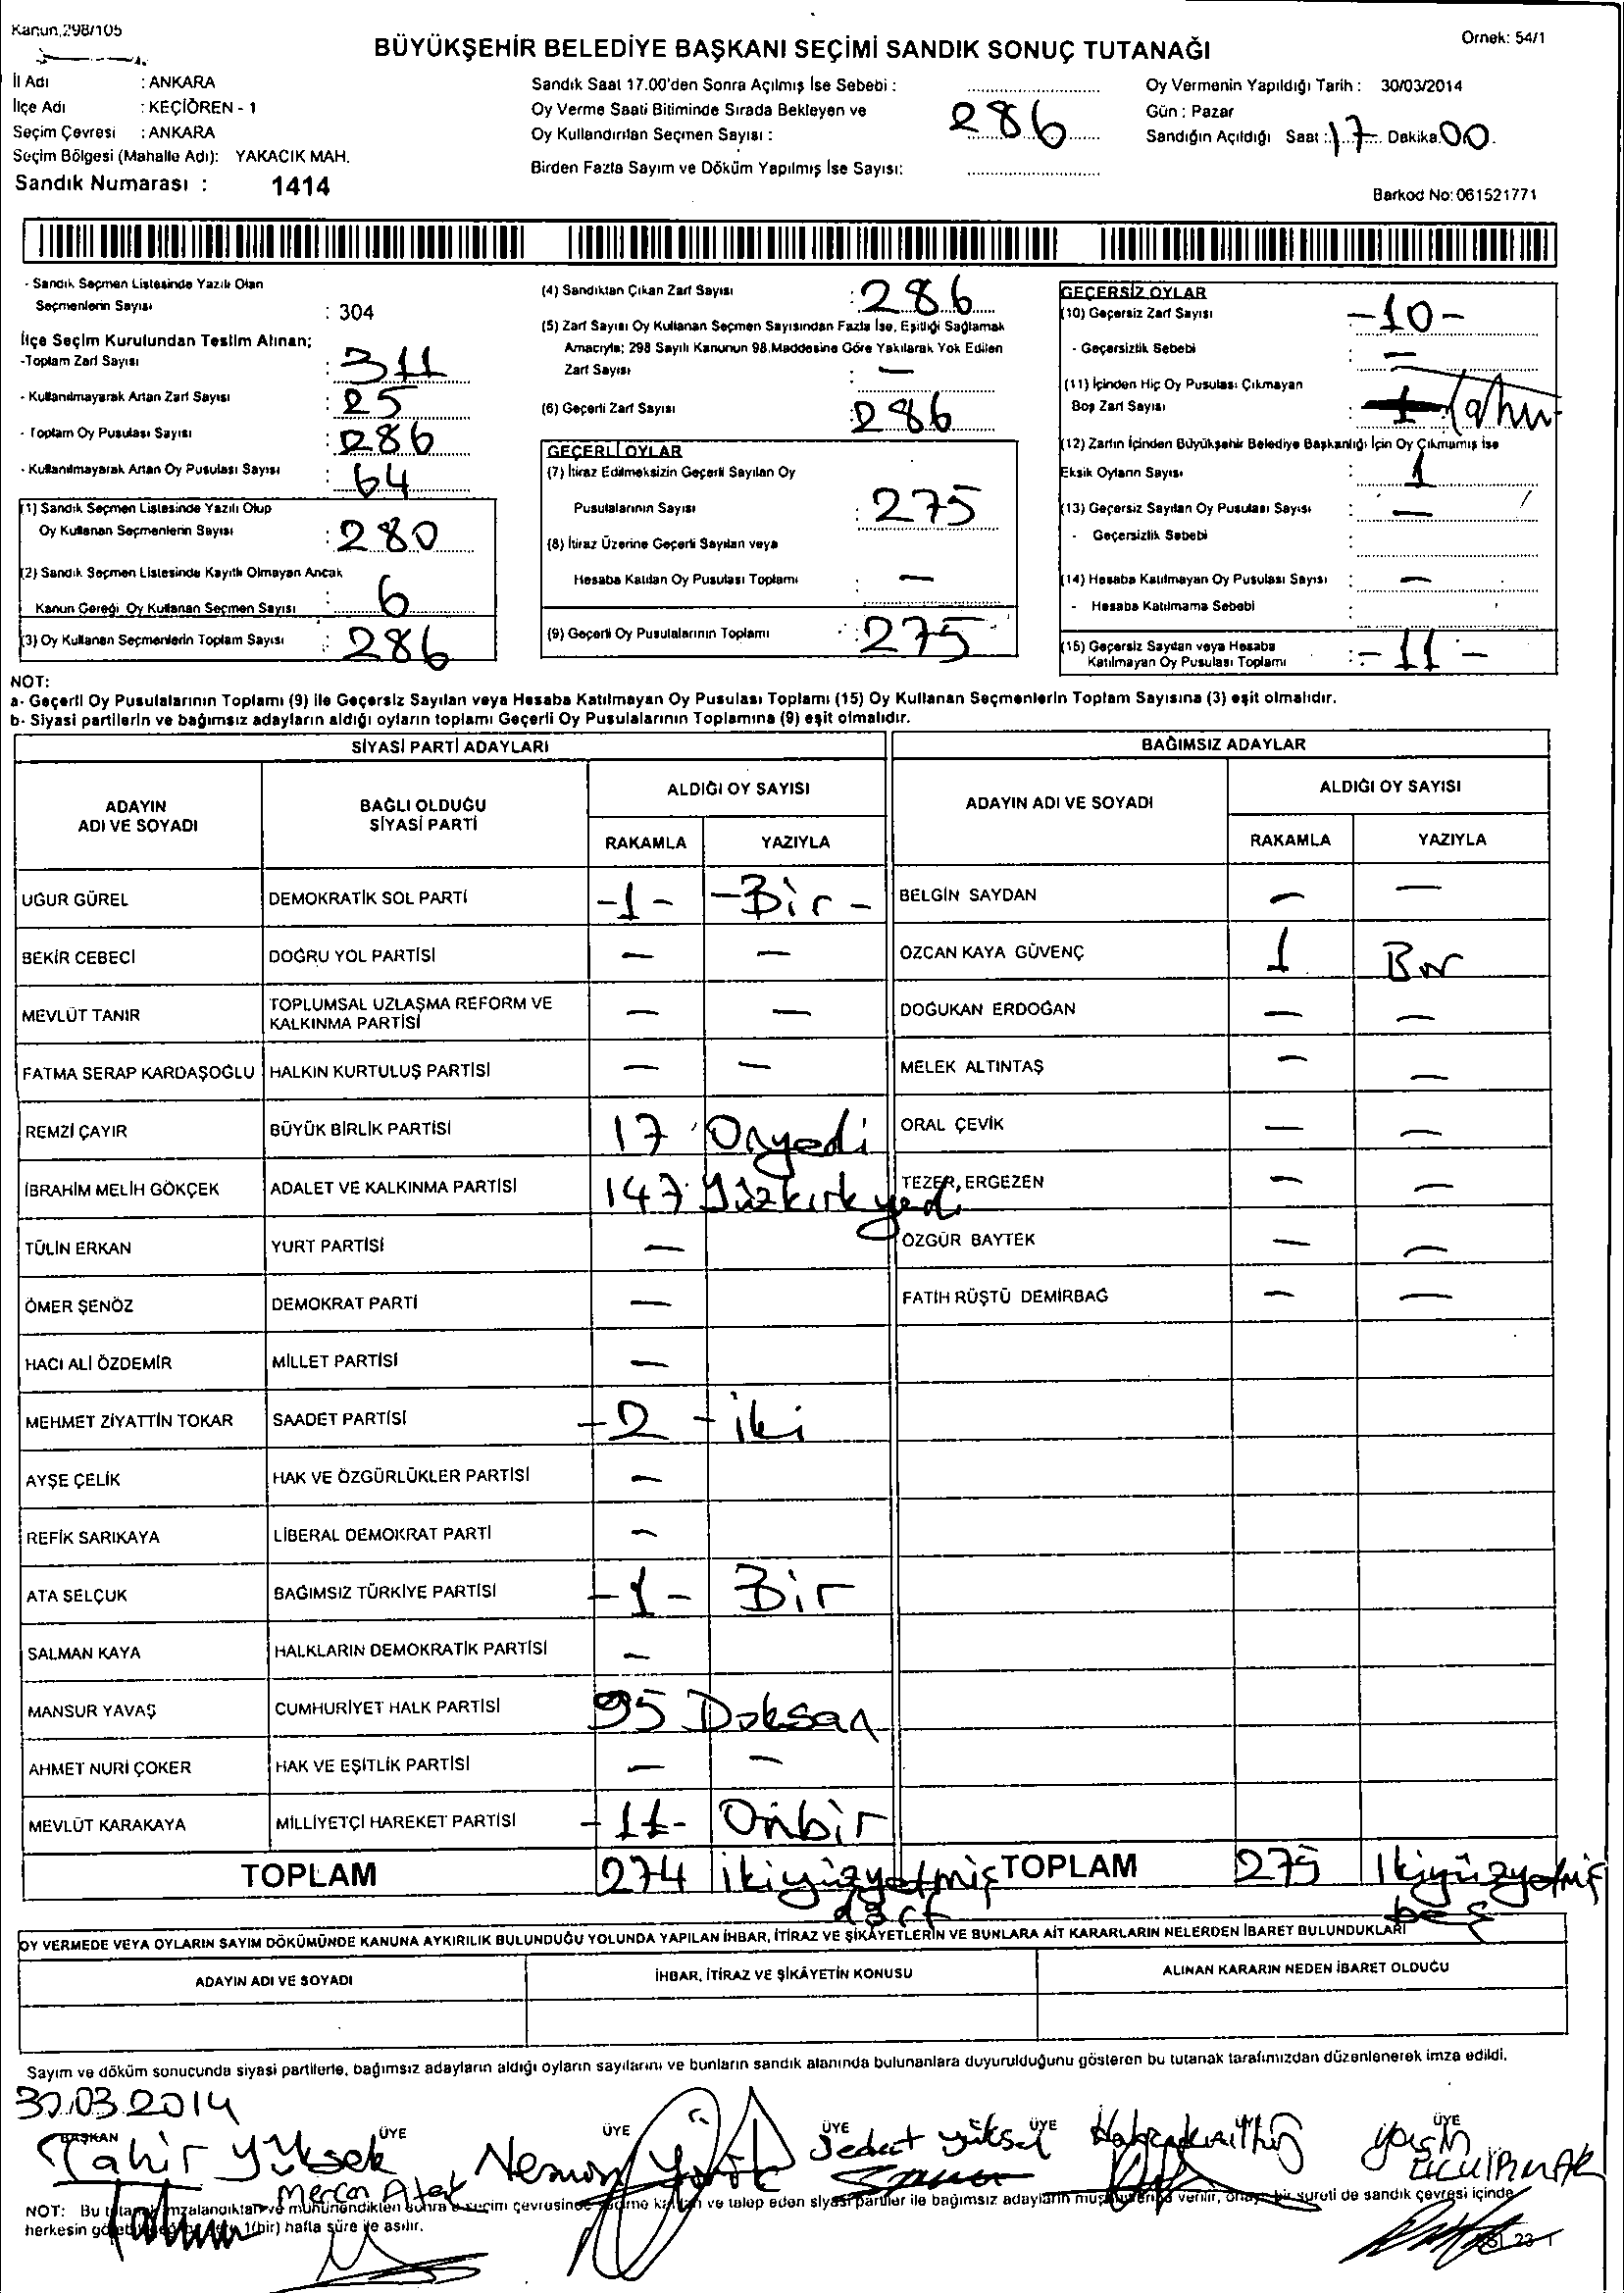 Kanun.298/105
Örnek: 54/1
BÜYÜKŞEHİR BELEDİYE BAŞKANI SEÇİMİ SANDIK SONUÇ TUTANAĞI
İl Adı : ANKARA
İlçe Adı : KEÇİÖREN - 1
Seçim Çevresi : ANKARA
Seçim Bölgesi (Mahalle Adı): YAKACIK MAH.
Sandık Numarası : 1414
Sandık Saat 17.00'den Sonra Açılmış İse Sebebi :
Oy Verme Saati Bitiminde Sırada Bekleyen ve
Oy Kullandırılan Seçmen Sayısı : 286
Birden Fazla Sayım ve Döküm Yapılmış İse Sayısı:
Oy Vermenin Yapıldığı Tarih : 30/03/2014
Gün : Pazar
Sandığın Açıldığı Saat : 17 Dakika 00
Barkod No: 061521771
- Sandık Seçmen Listesinde Yazılı Olan
Seçmenlerin Sayısı : 304
İlçe Seçim Kurulundan Teslim Alınan;
-Toplam Zarf Sayısı : 311
- Kullanılmayarak Artan Zarf Sayısı : 25
- Toplam Oy Pusulası Sayısı : 286
- Kullanılmayarak Artan Oy Pusulası Sayısı : 64
(1) Sandık Seçmen Listesinde Yazılı Olup
Oy Kullanan Seçmenlerin Sayısı : 280
(2) Sandık Seçmen Listesinde Kayıtlı Olmayan Ancak
Kanun Gereği Oy Kullanan Seçmen Sayısı : 6
(3) Oy Kullanan Seçmenlerin Toplam Sayısı : 286
(4) Sandıktan Çıkan Zarf Sayısı : 286
(5) Zarf Sayısı Oy Kullanan Seçmen Sayısından Fazla İse, Eşitliği Sağlamak
Amacıyla; 298 Sayılı Kanunun 98.Maddesine Göre Yakılarak Yok Edilen
Zarf Sayısı : —
(6) Geçerli Zarf Sayısı : 286
GEÇERLİ OYLAR
(7) İtiraz Edilmeksizin Geçerli Sayılan Oy
Pusulalarının Sayısı : 275
(8) İtiraz Üzerine Geçerli Sayılan veya
Hesaba Katılan Oy Pusulası Toplamı : —
(9) Geçerli Oy Pusulalarının Toplamı : 275
GEÇERSİZ OYLAR
(10) Geçersiz Zarf Sayısı : -10-
- Geçersizlik Sebebi : —
(11) İçinden Hiç Oy Pusulası Çıkmayan
Boş Zarf Sayısı :
(12) Zarfın İçinden Büyükşehir Belediye Başkanlığı İçin Oy Çıkmamış İse
Eksik Oyların Sayısı : 1
(13) Geçersiz Sayılan Oy Pusulası Sayısı : —
- Geçersizlik Sebebi :
(14) Hesaba Katılmayan Oy Pusulası Sayısı : —
- Hesaba Katılmama Sebebi :
(15) Geçersiz Sayılan veya Hesaba
Katılmayan Oy Pusulası Toplamı : - 11 -
NOT:
a- Geçerli Oy Pusulalarının Toplamı (9) ile Geçersiz Sayılan veya Hesaba Katılmayan Oy Pusulası Toplamı (15) Oy Kullanan Seçmenlerin Toplam Sayısına (3) eşit olmalıdır.
b- Siyasi partilerin ve bağımsız adayların aldığı oyların toplamı Geçerli Oy Pusulalarının Toplamına (9) eşit olmalıdır.
SİYASİ PARTİ ADAYLARI
ADAYIN ADI VE SOYADI
BAĞLI OLDUĞU SİYASİ PARTİ
ALDIĞI OY SAYISI
RAKAMLA YAZIYLA
UĞUR GÜREL DEMOKRATİK SOL PARTİ -1- -Bir-
BEKİR CEBECİ DOĞRU YOL PARTİSİ — —
MEVLÜT TANIR TOPLUMSAL UZLAŞMA REFORM VE KALKINMA PARTİSİ — —
FATMA SERAP KARDAŞOĞLU HALKIN KURTULUŞ PARTİSİ — —
REMZİ ÇAYIR BÜYÜK BİRLİK PARTİSİ 17 Onyedi
İBRAHİM MELİH GÖKÇEK ADALET VE KALKINMA PARTİSİ 147 Yüzkırkyedi
TÜLİN ERKAN YURT PARTİSİ —
ÖMER ŞENÖZ DEMOKRAT PARTİ —
HACI ALİ ÖZDEMİR MİLLET PARTİSİ —
MEHMET ZİYATTİN TOKAR SAADET PARTİSİ -2- iki
AYŞE ÇELİK HAK VE ÖZGÜRLÜKLER PARTİSİ —
REFİK SARIKAYA LİBERAL DEMOKRAT PARTİ —
ATA SELÇUK BAĞIMSIZ TÜRKİYE PARTİSİ -1- Bir
SALMAN KAYA HALKLARIN DEMOKRATİK PARTİSİ —
MANSUR YAVAŞ CUMHURİYET HALK PARTİSİ 95 Doksan
AHMET NURİ ÇOKER HAK VE EŞİTLİK PARTİSİ — —
MEVLÜT KARAKAYA MİLLİYETÇİ HAREKET PARTİSİ -11- Onbir
TOPLAM 274 İkiyüzyetmiş dört
BAĞIMSIZ ADAYLAR
ADAYIN ADI VE SOYADI
ALDIĞI OY SAYISI
RAKAMLA YAZIYLA
BELGİN SAYDAN — —
ÖZCAN KAYA GÜVENÇ 1 Bir
DOĞUKAN ERDOĞAN — —
MELEK ALTINTAŞ — —
ORAL ÇEVİK — —
TEZER, ERGEZEN — —
ÖZGÜR BAYTEK — —
FATİH RÜŞTÜ DEMİRBAĞ — —
TOPLAM 275 İkiyüzyetmiş beş
OY VERMEDE VEYA OYLARIN SAYIM DÖKÜMÜNDE KANUNA AYKIRILIK BULUNDUĞU YOLUNDA YAPILAN İHBAR, İTİRAZ VE ŞİKAYETLERİN VE BUNLARA AİT KARARLARIN NELERDEN İBARET BULUNDUKLARI
ADAYIN ADI VE SOYADI
İHBAR, İTİRAZ VE ŞİKÂYETİN KONUSU
ALINAN KARARIN NEDEN İBARET OLDUĞU
Sayım ve döküm sonucunda siyasi partilerle, bağımsız adayların aldığı oyların sayılarını ve bunların sandık alanında bulunanlara duyurulduğunu gösteren bu tutanak tarafımızdan düzenlenerek imza edildi.
30.03.2014
BAŞKAN ÜYE ÜYE ÜYE ÜYE ÜYE
Tahir Yüksek
Mercan
Sedat Yüksel
Yasin
NOT: Bu tutanak imzalandıktan ve mühürlendikten sonra o seçim çevresinde seçime katılan ve talep eden siyasi partiler ile bağımsız adayların müşahitlerine verilir, onaylı bir sureti de sandık çevresi içinde
herkesin 1(bir) hafta süre ile asılır.